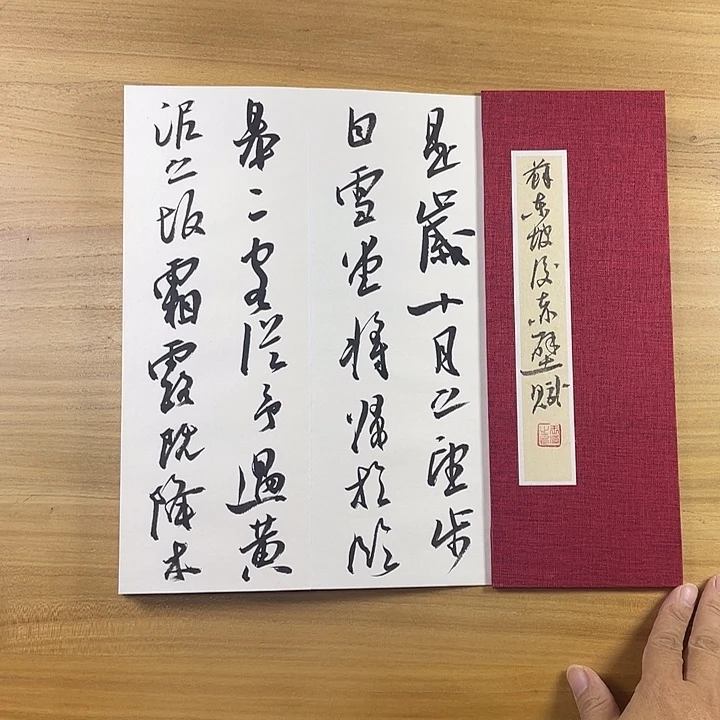 蘇東坡後赤壁賦
是歲十月之望步
自雪堂將歸於臨
皋二客從予過黃
泥之坂霜露既降木